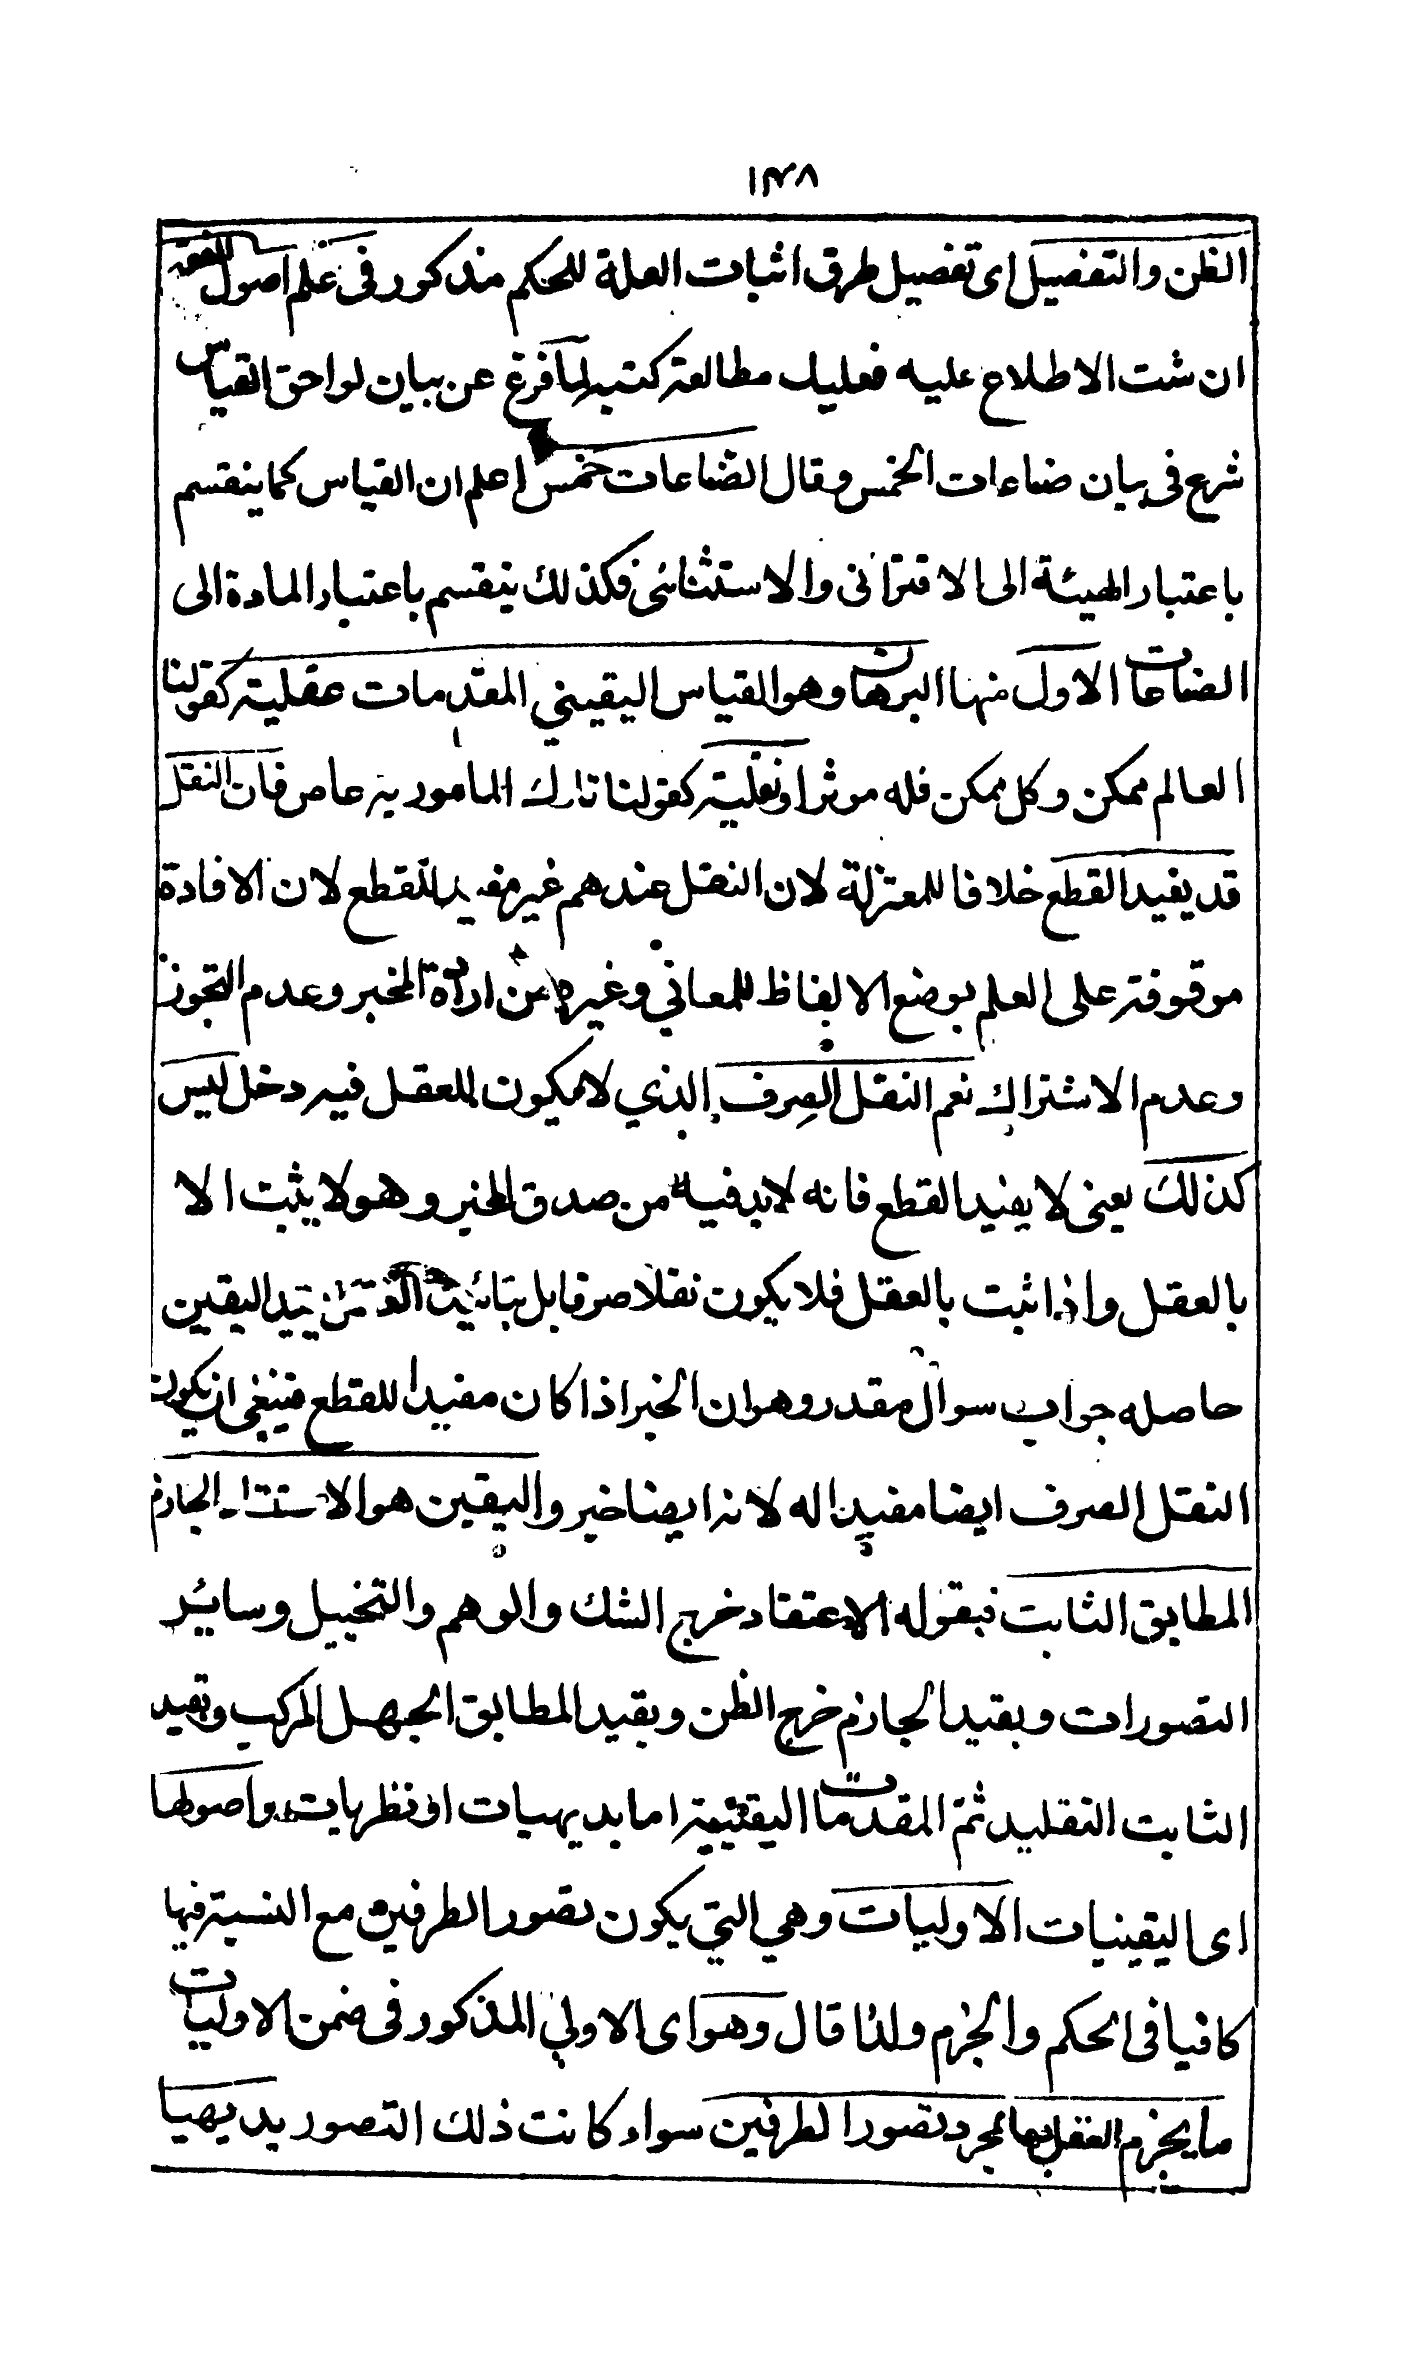 ١٣٨
الظن والتفصيل اى تفصيل طرق اثبات العلة للحكم مذكور فى علم اصول الفقه
ان شت الاطلاع عليه فعليك مطالعة كتبه لما فرغ عن بيان لواحق القياس
شرع فى بيان صناعات الخمس وقال الصناعات خمس اعلم ان القياس كما ينقسم
باعتبار الهيئة الى الاقترانى والاستثنائى فكذلك ينقسم باعتبار المادة الى
الصناعات الاول منها البرهان وهو القياس اليقيني المقدمات عقلية كقولنا
العالم ممكن وكل ممكن فله موثر او نقلية كقولنا تارك المامور به عاص فان النقل
قد يفيد القطع خلافا للمعتزلة لان النقل عندهم غير مفيد للقطع لان الافادة
موقوفة على العلم بوضع الالفاظ للمعاني وغيره عن ارادة المخبر وعدم التجوز
وعدم الاشتراك نعم النقل الصرف الذي لا يكون للعقل فيه دخل ليس
كذلك يعنى لا يفيد القطع فانه لابد فيه من صدق المخبر وهو لا يثبت الا
بالعقل واذا ثبت بالعقل فلا يكون نقلا صرفا بل بتائيد اليقين
حاصله جواب سوال مقدر وهو ان الخبر اذا كان مفيدا للقطع فينبغى ان يكون
النقل الصرف ايضا مفيدا له لانه ايضا خبر واليقين هو الاعتقاد الجازم
المطابق الثابت فبقوله الاعتقاد خرج الشك والوهم والتخييل وسائر
التصورات وبقيد الجازم خرج الظن وبقيد المطابق الجهل المركب وبقيد
الثابت التقليد ثم المقدمات اليقينية اما بديهيات او نظريات واصولها
اى اليقينيات الاوليات وهي التي يكون تصور الطرفين مع النسبة فيها
كافيا فى الحكم والجزم ولذا قال وهو اى الاولي المذكور فى ضمن الاوليات
ما يجزم العقل بها لمجرد تصور الطرفين سواء كانت ذلك التصور بديهيا